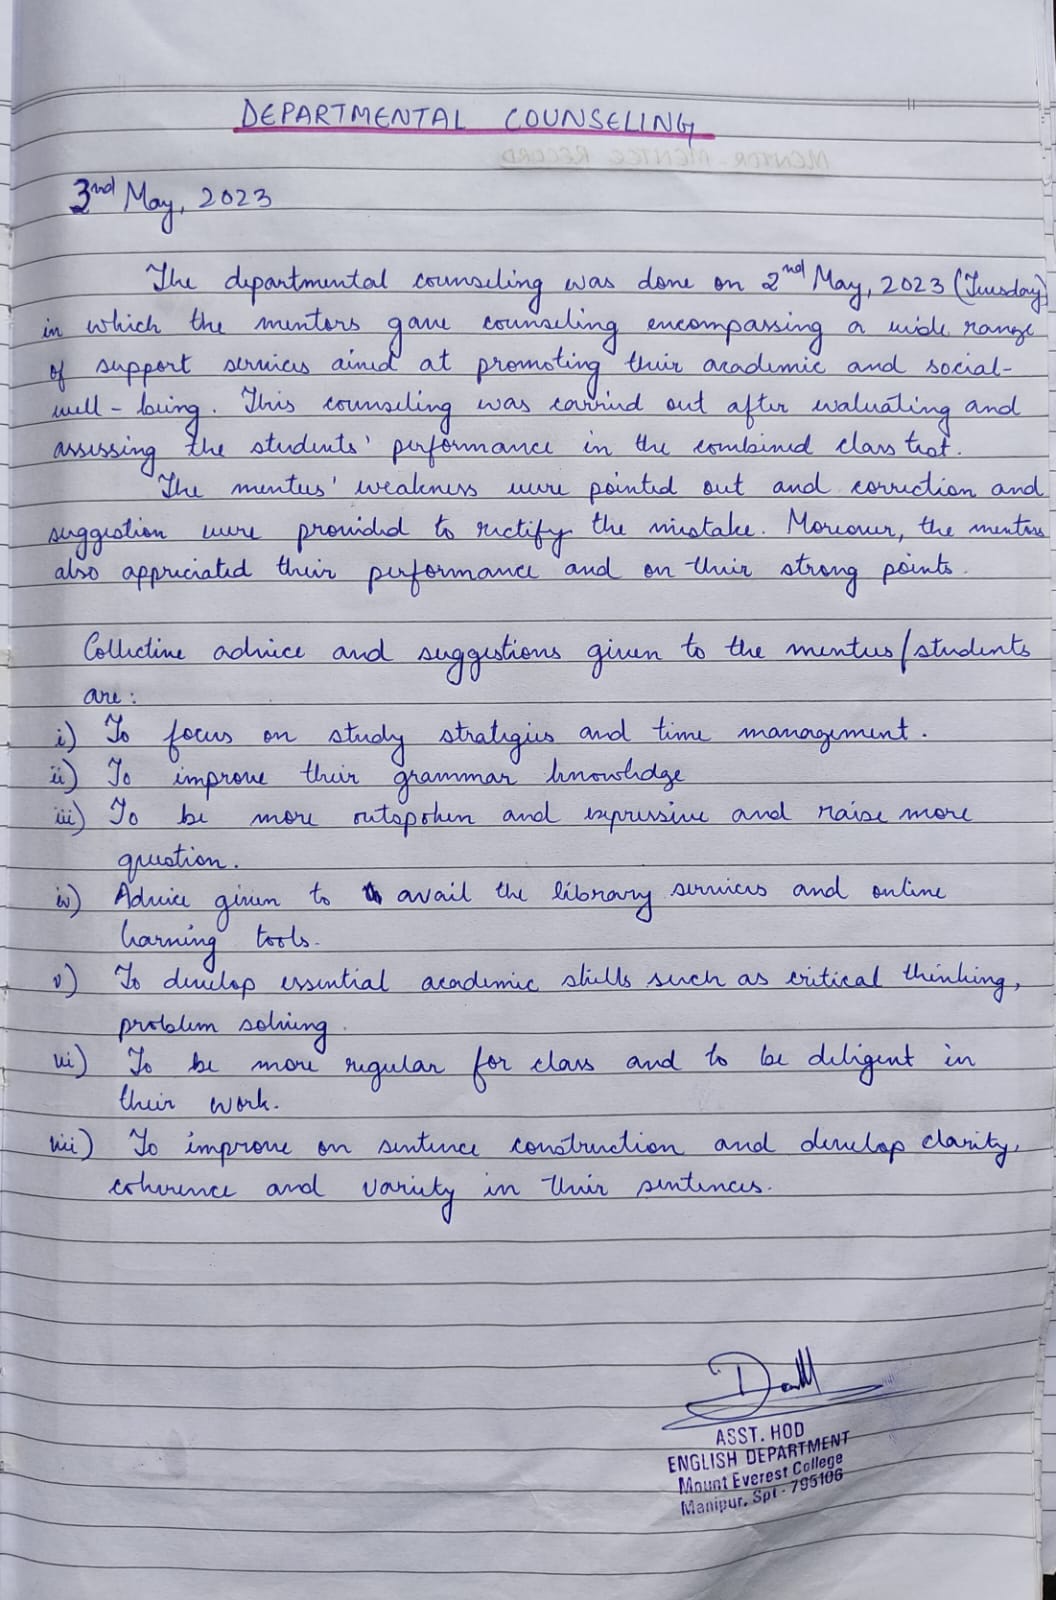 DEPARTMENTAL COUNSELING
MENTOR-MENTEE RECORD
3nd May, 2023
The departmental counseling was done on 2nd May, 2023 (Tuesday)
in which the mentors gave counseling encompassing a wide range
of support services aimed at promoting their academic and social-
well-being. This counseling was carried out after evaluating and
assessing the students' performance in the combined class test.
The mentees' weakness were pointed out and correction and
suggestion were provided to rectify the mistake. Moreover, the mentors
also appreciated their performance and on their strong points.
Collective advice and suggestions given to the mentees/students
are:
i) To focus on study strategies and time management.
ii) To improve their grammar knowledge
iii) To be more outspoken and expressive and raise more
question.
iv) Advice given to avail the library services and online
learning tools.
v) To develop essential academic skills such as critical thinking,
problem solving.
vi) To be more regular for class and to be diligent in
their work.
vii) To improve on sentence construction and develop clarity,
coherence and variety in their sentences.
ASST. HOD
ENGLISH DEPARTMENT
Mount Everest College
Manipur, Spt - 795106